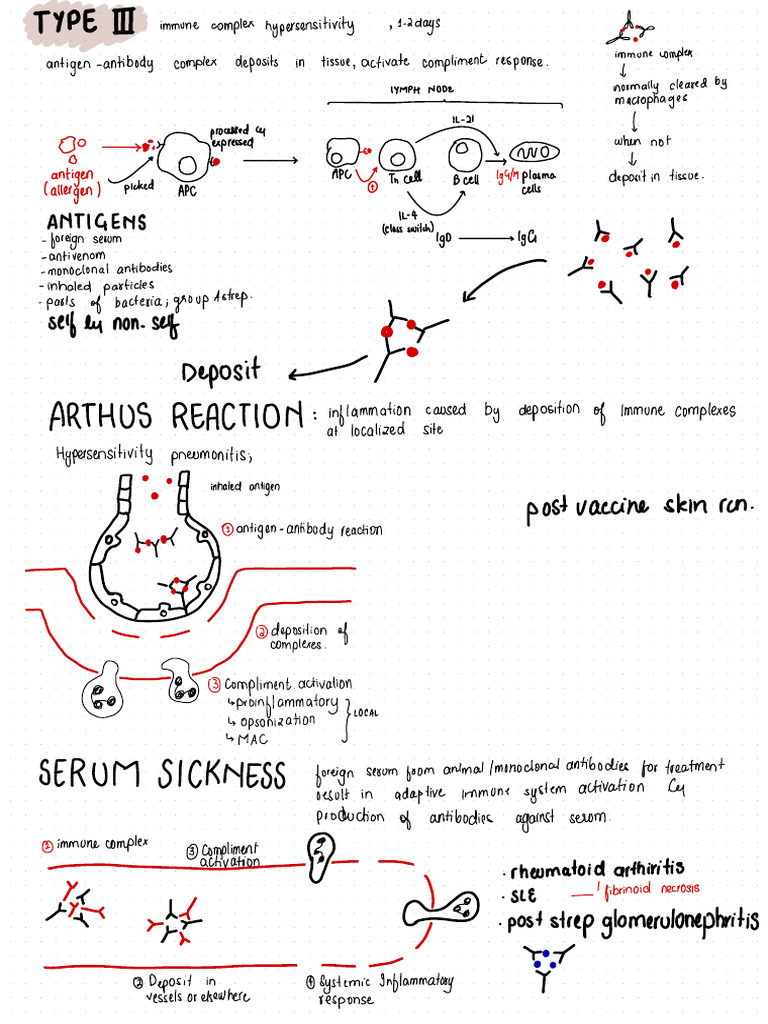 TYPE III immune complex hypersensitivity , 1-2 days
antigen-antibody complex deposits in tissue, activate compliment response.
immune complex
normally cleared by
macrophages
when not
deposit in tissue.
LYMPH NODE
antigen
(allergen)
picked
processed &
expressed
APC
APC
TH cell
IL-21
B cell
IgG/M plasma
cells
IL-4
(class switch)
IgD
IgG
ANTIGENS
- foreign serum
- antivenom
- monoclonal antibodies
- inhaled particles
- parts of bacteria; group A strep.
self & non-self
Deposit
ARTHUS REACTION : inflammation caused by deposition of immune complexes
at localized site
Hypersensitivity pneumonitis;
inhaled antigen
post vaccine skin rcn.
① antigen-antibody reaction
② deposition of
complexes.
③ Compliment activation
↳ proinflammatory
↳ opsonization
↳ MAC
LOCAL
SERUM SICKNESS
foreign serum from animal/monoclonal antibodies for treatment
result in adaptive immune system activation &
production of antibodies against serum.
① immune complex
③ Compliment
activation
② Deposit in
vessels or elsewhere
④ Systemic Inflammatory
response
· rheumatoid arthiritis
· SLE
! fibrinoid necrosis
· post strep glomerulonephritis